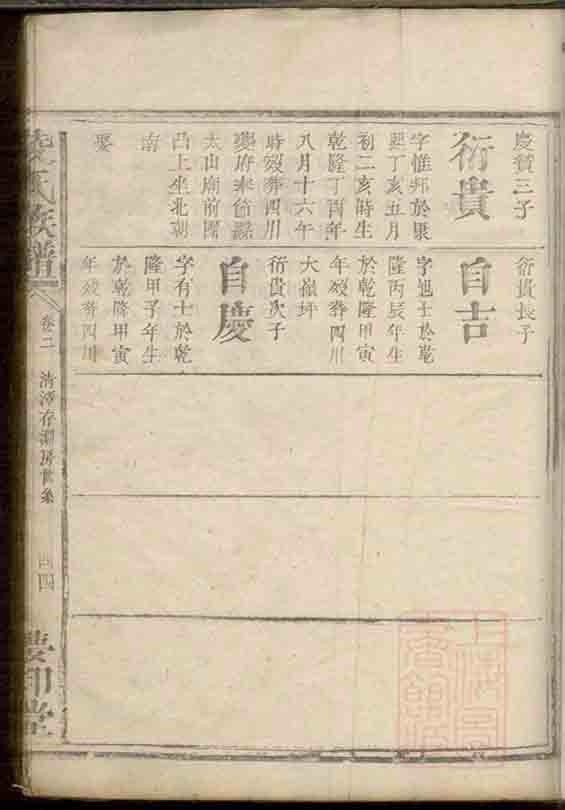 慶賀三子
衍貴
字惟邦於康
熙丁亥五月
初二亥時生
乾隆丁酉年
八月十六午
時歿葬四川
夔府奉節縣
太山廟前園
凸上坐北朝
南
娶
衍貴長子
自吉
字旭士於乾
隆丙辰年生
於乾隆甲寅
年歿葬四川
大嶺坪
衍貴次子
自慶
字有士於乾
隆甲子年生
於乾隆甲寅
年歿葬四川
氏族譜
卷二
清潭存淵房世系
四
堂